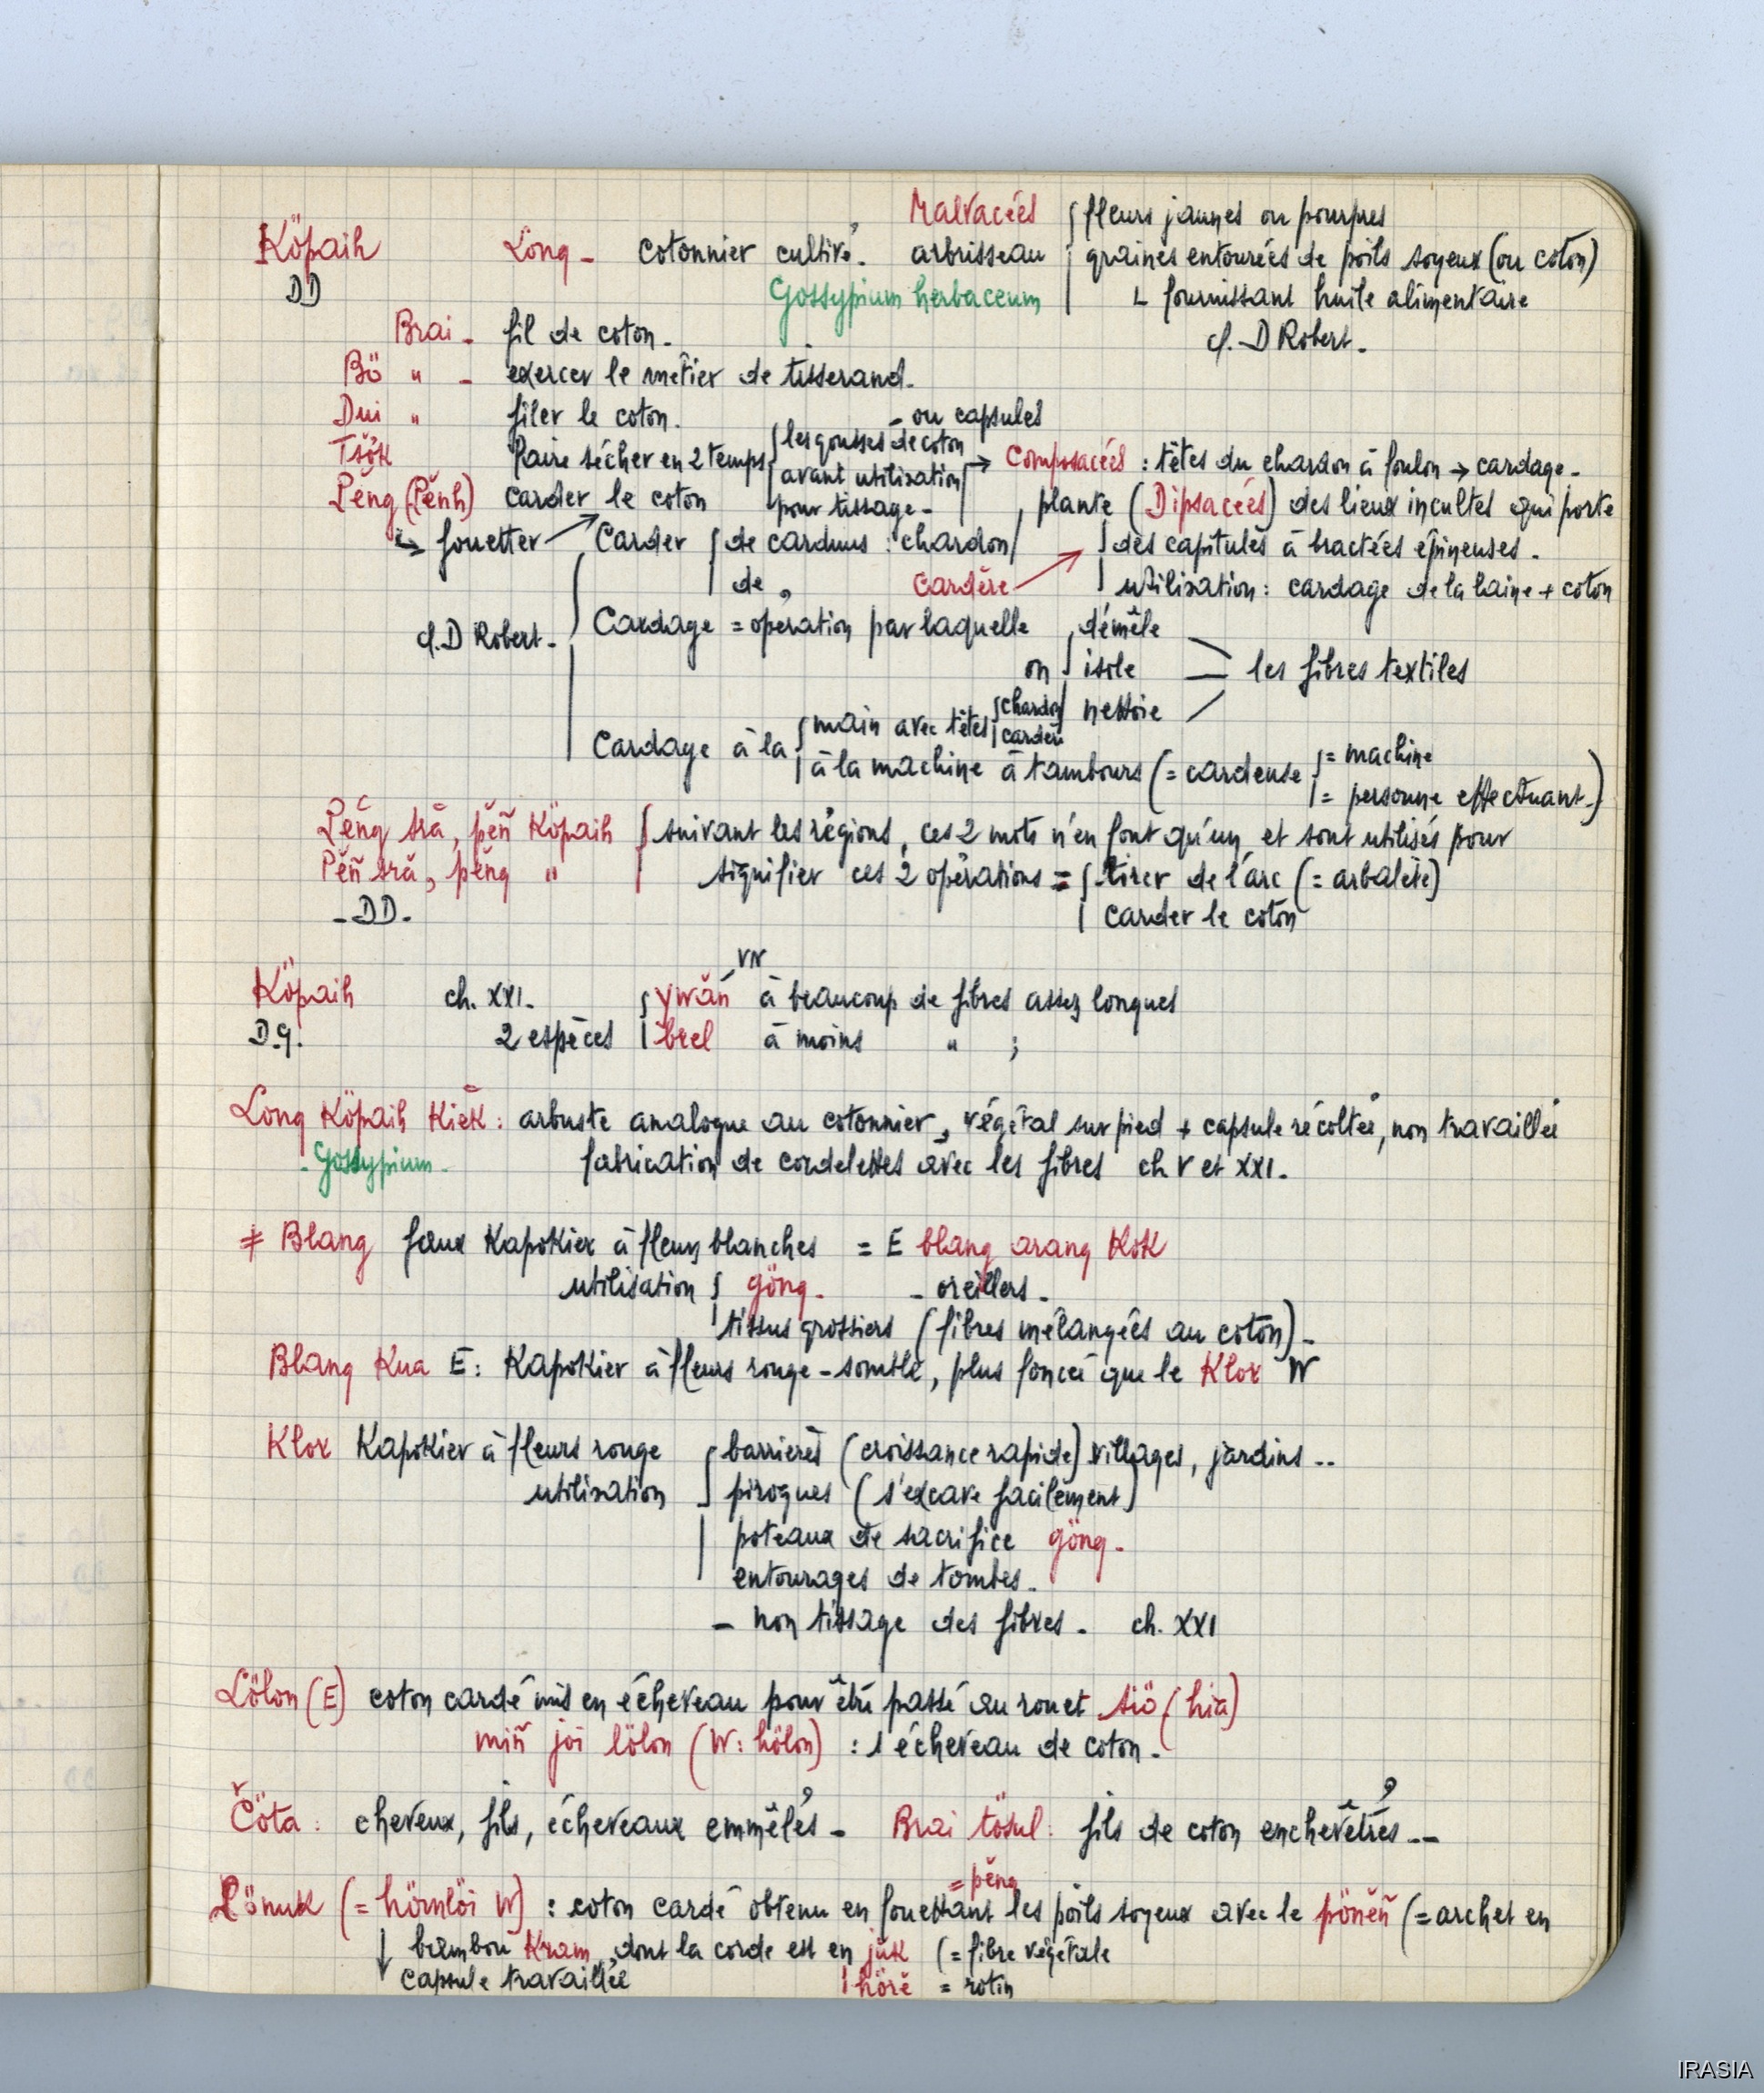 Malvacées { fleurs jaunes ou pourpres
Köpaih Long - cotonnier cultivé. arbrisseau { graines entourées de poils soyeux (ou coton)
DD Gossypium herbaceum | L fournissant huile alimentaire
Brai - fil de coton. cf. D Robert.
Bö " - exercer le métier de tisserand.
Dui " filer le coton. - ou capsules
Tšŏk Faire sécher en 2 temps { les gousses de coton avant utilisation pour tissage - → Composacées : têtes du chardon à foulon → cardage.
Pĕng (Pĕnh) carder le coton plante (Dipsacées) des lieux incultes qui porte
↳ fouetter ↗ Carder { de carduus : chardon { des capitules à bractées épineuses.
de " cardère ↗ utilisation : cardage de la laine + coton
cf. D Robert. Cardage = opération par laquelle on { démêle
isole — les fibres textiles
nettoie
Cardage à la { main avec têtes { chardon cardère
à la machine à tambours (= cardeuse { = machine
= personne effectuant.)
Pĕng sră, pĕñ Köpaih { suivant les régions, ces 2 mots n'en font qu'un, et sont utilisés pour
Pĕñ sră, pĕng " signifier ces 2 opérations = { tirer de l'arc (= arbalète)
- DD. carder le coton
VN
Köpaih ch. XXI. { ywăn à beaucoup de fibres assez longues
D.g. 2 espèces { brel à moins " ;
Long Köpaih Kiĕk : arbuste analogue au cotonnier, végétal sur pied + capsule récoltée, non travaillée
- Gossypium - fabrication de cordelettes avec les fibres ch V et XXI.
≠ Blang faux Kapokier à fleurs blanches = E blang arang Kok
utilisation { göng. - oreillers.
tissus grossiers (fibres mélangées au coton).
Blang Kua E : Kapokier à fleurs rouge-sombre, plus foncée que le Klor W
Klor Kapokier à fleurs rouge { barrières (croissance rapide) villages, jardins ..
utilisation pirogues (s'excave facilement)
poteaux de sacrifice göng.
entourages de tombes.
- non tissage des fibres. ch. XXI
Lölon (E) coton cardé mis en écheveau pour être passé au rouet siö (hia)
miñ joi lölon (W : hölon) : 1 écheveau de coton.
Čöta : cheveux, fils, écheveaux emmêlés - Brai tösul : fils de coton enchevêtrés --
= pĕng
Lönuk (= hömlöi W) : coton cardé obtenu en fouettant les poils soyeux avec le pönĕñ (= archet en
↓ bambou Kram, dont la corde est en jŭk (= fibre végétale
capsule travaillée hörĕ = rotin
IRASIA